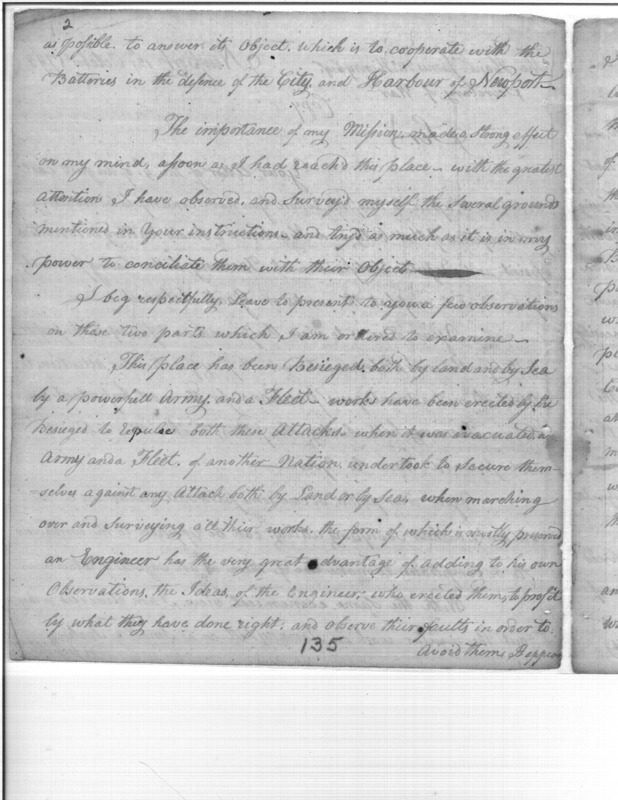 2
as possible to answer its object. which is to cooperate with the
Batteries in the defence of the City, and Harbour of Newport—
The importance of my Mission, made a strong effect
on my mind, assoon as I had reach'd this place— with the greatest
attention I have observed, and Survey'd myself the Several grounds
mentioned in Your instructions— and try'd as much as it is in my
power to conciliate them with their Object
I beg respectfully Leave to present to you a few observations
on those two parts which I am ordered to examine—
This place has been Besieged, both by land and by Sea
by a powerfull Army, and a Fleet— works have been erected by the
Besieged to Repulse both these Attacks. when it was evacuated, an
Army and a Fleet. of another Nation. undertook to Secure them-
-selves against any Attack both by Land or by Sea, when marching
over and Surveying all their works. the form of which is mostly preserved
an Engineer has the very great advantage of adding to his own
Observations, the Ideas, of the Engineer; who erected them, to profit
by what they have done right; and observe their faults in order to
135
avoid them.